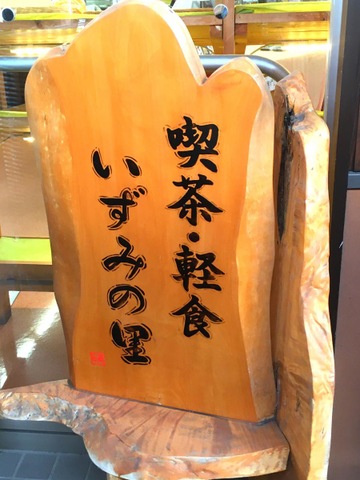 喫茶・軽食
いずみの里